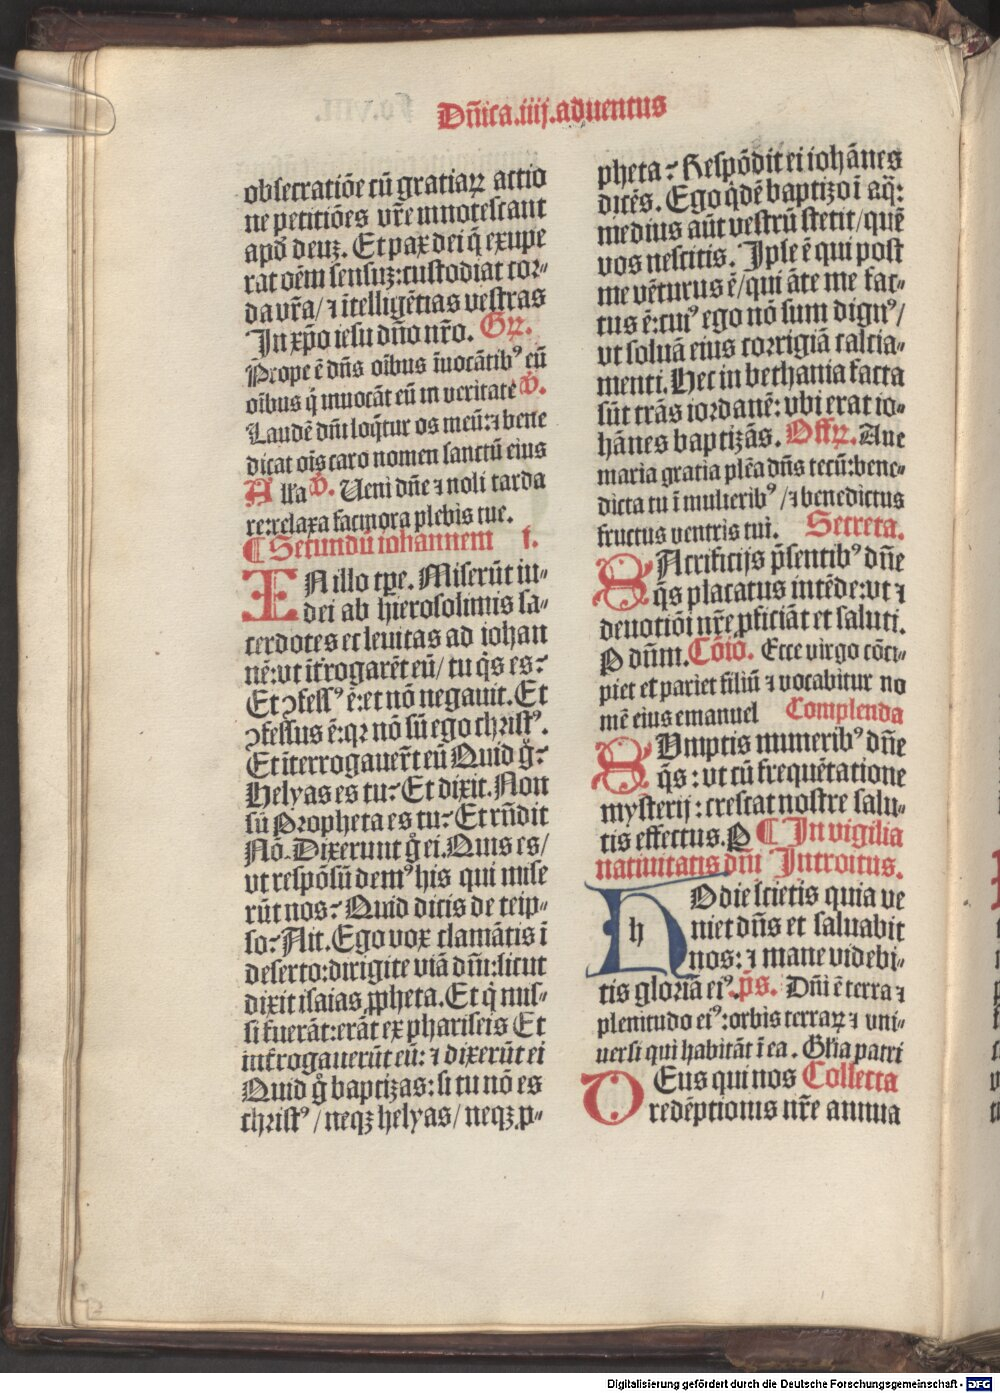 Dn̄ica.iiij.aduentus
obsecratiōe cū gratiaꝝ actio
ne petitiōes vr̄e innotescant
apd̓ deuꝫ. Et pax dei q̄ exupe
rat oēm sensuꝫ:custodiat cor⸗
da vr̄a/ ⁊ ītelligētias vestras
In xp̄o iesu dn̄o nr̄o. Gꝝ.
Prope ē dn̄s oībus īuocātibꝰ eū
oībus q̇ inuocāt eū in veritate ℣.
Laudē dn̄i loq̄tur os meū:⁊ bene
dicat oīs caro nomen sanctū eius
Alla ℣. Ueni dn̄e ⁊ noli tarda
re:relaxa facinora plebis tue.
¶ Secundū iohannem j.
IN illo tꝑe. Miserūt iu⸗
dei ab hierosolimis sa⸗
cerdotes et leuitas ad iohan
nē:vt īt̄rogarēt eū/ tu q̇s es?
Et ꝯfessꝰ ē:et nō negauit. Et
ꝯfessus ē:qꝛ nō sū ego christꝰ.
Et īterrogauer̄t eū Quid g̊?
Helyas es tu? Et dixit. Non
sū Propheta es tu? Et rn̄dit
Nō. Dixerunt g̊ ei. Quis es/
vt respōsū demꝰ his qui mise
rūt nos? Quid dicis de teip⸗
so? Ait. Ego vox clamātis ī
deserto:dirigite viā dn̄i:sicut
dixit isaias ꝓpheta. Et q̇ mis⸗
si fuerāt:erāt ex phariseis Et
int̄rogauerūt eū: ⁊ dixerūt ei
Quid g̊ baptizas: si tu nō es
christꝰ/ neqꝫ helyas/ neqꝫ ꝓ⸗
pheta? Respōdit ei iohānes
dicēs. Ego q̇dē baptizo ī aq̄:
medius aūt vestrū stetit/ quē
vos nescitis. Ipse ē qui post
me vēturus ē/ qui āte me fac⸗
tus ē:cuiꝰ ego nō sum dignꝰ/
vt soluā eius corrigiā calcia⸗
menti. Hec in bethania facta
sūt trās iordanē: vbi erat io⸗
hānes baptizās. Offꝝ. Aue
maria gratia plēa dn̄s tecū:bene⸗
dicta tu ī mulieribꝰ/ ⁊ benedictus
fructus ventris tui. Secreta.
SAcrificijs p̄sentibꝰ dn̄e
q̄s placatus intēde:vt ⁊
deuotiōi nr̄e ꝓficiāt et saluti.
P dūm. Cōio. Ecce virgo cōci⸗
piet et pariet filiū ⁊ vocabitur no
mē eius emanuel Complenda
SUmptis muneribꝰ dn̄e
q̄s: vt cū frequētatione
mysterij: crescat nostre salu⸗
tis effectus. P ¶ In vigilia
natiuitatis dn̄i Introitus.
HOdie scietis quia ve
h niet dn̄s et saluabit
nos: ⁊ mane videbi⸗
tis gloriā eiꝰ. p̄s. Dn̄i ē terra ⁊
plenitudo eiꝰ:orbis terraꝝ ⁊ vni⸗
uersi qui habitāt ī ea. Glia patri
DEus qui nos Collecta
redēptionis nr̄e annua
Digitalisierung gefördert durch die Deutsche Forschungsgemeinschaft - DFG